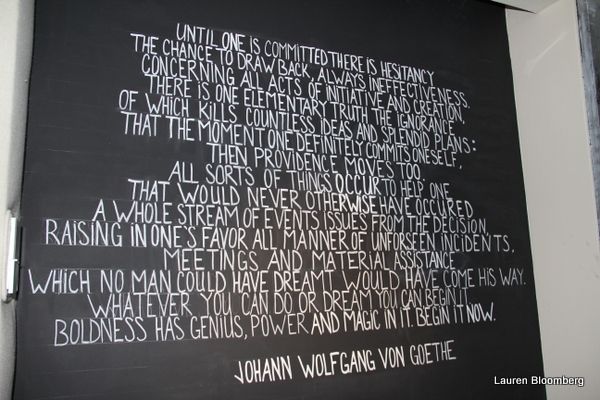 UNTIL ONE IS COMMITTED THERE IS HESITANCY
THE CHANCE TO DRAW BACK, ALWAYS INEFFECTIVENESS.
CONCERNING ALL ACTS OF INITIATIVE AND CREATION,
THERE IS ONE ELEMENTARY TRUTH THE IGNORANCE
OF WHICH KILLS COUNTLESS IDEAS AND SPLENDID PLANS:
THAT THE MOMENT ONE DEFINITELY COMMITS ONESELF,
THEN PROVIDENCE MOVES TOO.
ALL SORTS OF THINGS OCCUR TO HELP ONE
THAT WOULD NEVER OTHERWISE HAVE OCCURED.
A WHOLE STREAM OF EVENTS ISSUES FROM THE DECISION,
RAISING IN ONE'S FAVOR ALL MANNER OF UNFORSEEN INCIDENTS,
MEETINGS AND MATERIAL ASSISTANCE
WHICH NO MAN COULD HAVE DREAMT WOULD HAVE COME HIS WAY.
WHATEVER YOU CAN DO OR DREAM YOU CAN BEGIN IT.
BOLDNESS HAS GENIUS, POWER AND MAGIC IN IT. BEGIN IT NOW.
JOHANN WOLFGANG VON GOETHE
Lauren Bloomberg